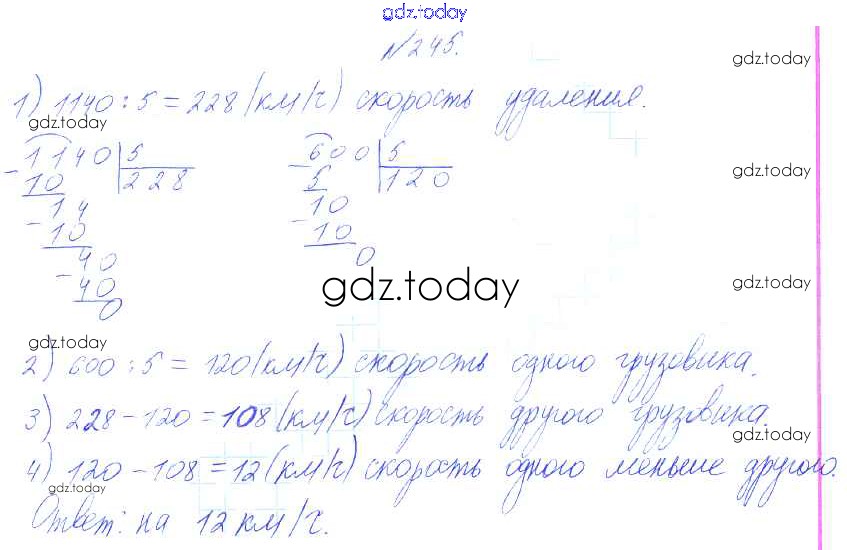 gdz.today
№245.
gdz.today
1) 1140 : 5 = 228 (км/ч) скорость удаления.
gdz.today
- 1140 | 5 - 600 | 5
10 228 5 120
gdz.today
14 10
- 10 - 10
40 0
- 40
0
gdz.today
gdz.today
gdz.today
2) 600 : 5 = 120 (км/ч) скорость одного грузовика.
3) 228 - 120 = 108 (км/ч) скорость другого грузовика.
gdz.today
4) 120 - 108 = 12 (км/ч) скорость одного меньше другого.
gdz.today
Ответ: на 12 км/ч.